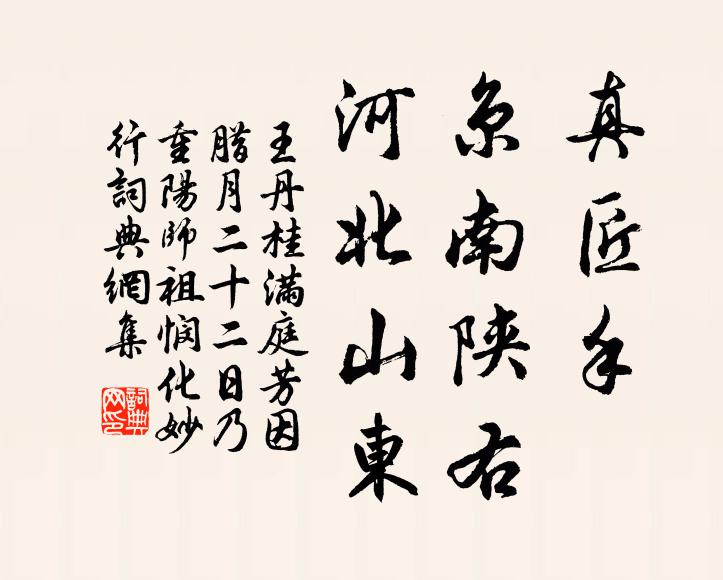 真匠手
京南陕右
河北山東
王丹桂滿庭芳因
腊月二十二日乃
重陽師祖悯化妙
行詞典網集
詞典
网印